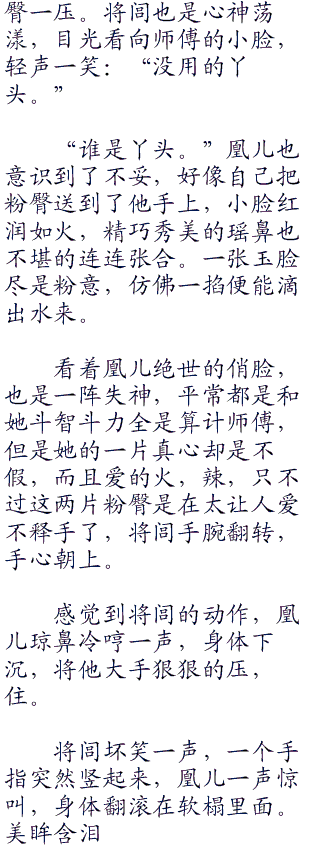 臀一压。将闾也是心神荡
漾，目光看向师傅的小脸，
轻声一笑：“没用的丫
头。”
“谁是丫头。”凰儿也
意识到了不妥，好像自己把
粉臀送到了他手上，小脸红
润如火，精巧秀美的瑶鼻也
不堪的连连张合。一张玉脸
尽是粉意，仿佛一掐便能滴
出水来。
看着凰儿绝世的俏脸，
也是一阵失神，平常都是和
她斗智斗力全是算计师傅，
但是她的一片真心却是不
假，而且爱的火，辣，只不
过这两片粉臀是在太让人爱
不释手了，将闾手腕翻转，
手心朝上。
感觉到将闾的动作，凰
儿琼鼻冷哼一声，身体下
沉，将他大手狠狠的压，
住。
将闾坏笑一声，一个手
指突然竖起来，凰儿一声惊
叫，身体翻滚在软榻里面。
美眸含泪